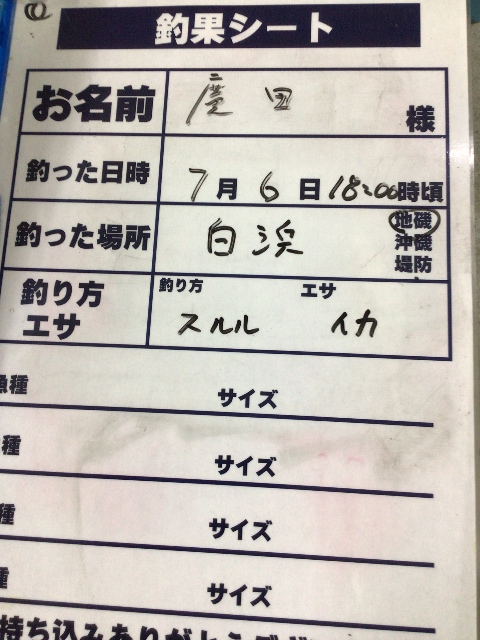 釣果シート
お名前 慶田 様
釣った日時 7月6日18:00時頃
釣った場所 白浜 地磯
沖磯
堤防
釣り方 釣り方 エサ
エサ スルル イカ
魚種 サイズ
種 サイズ
種 サイズ
種 サイズ
持ち込みありがとうござ